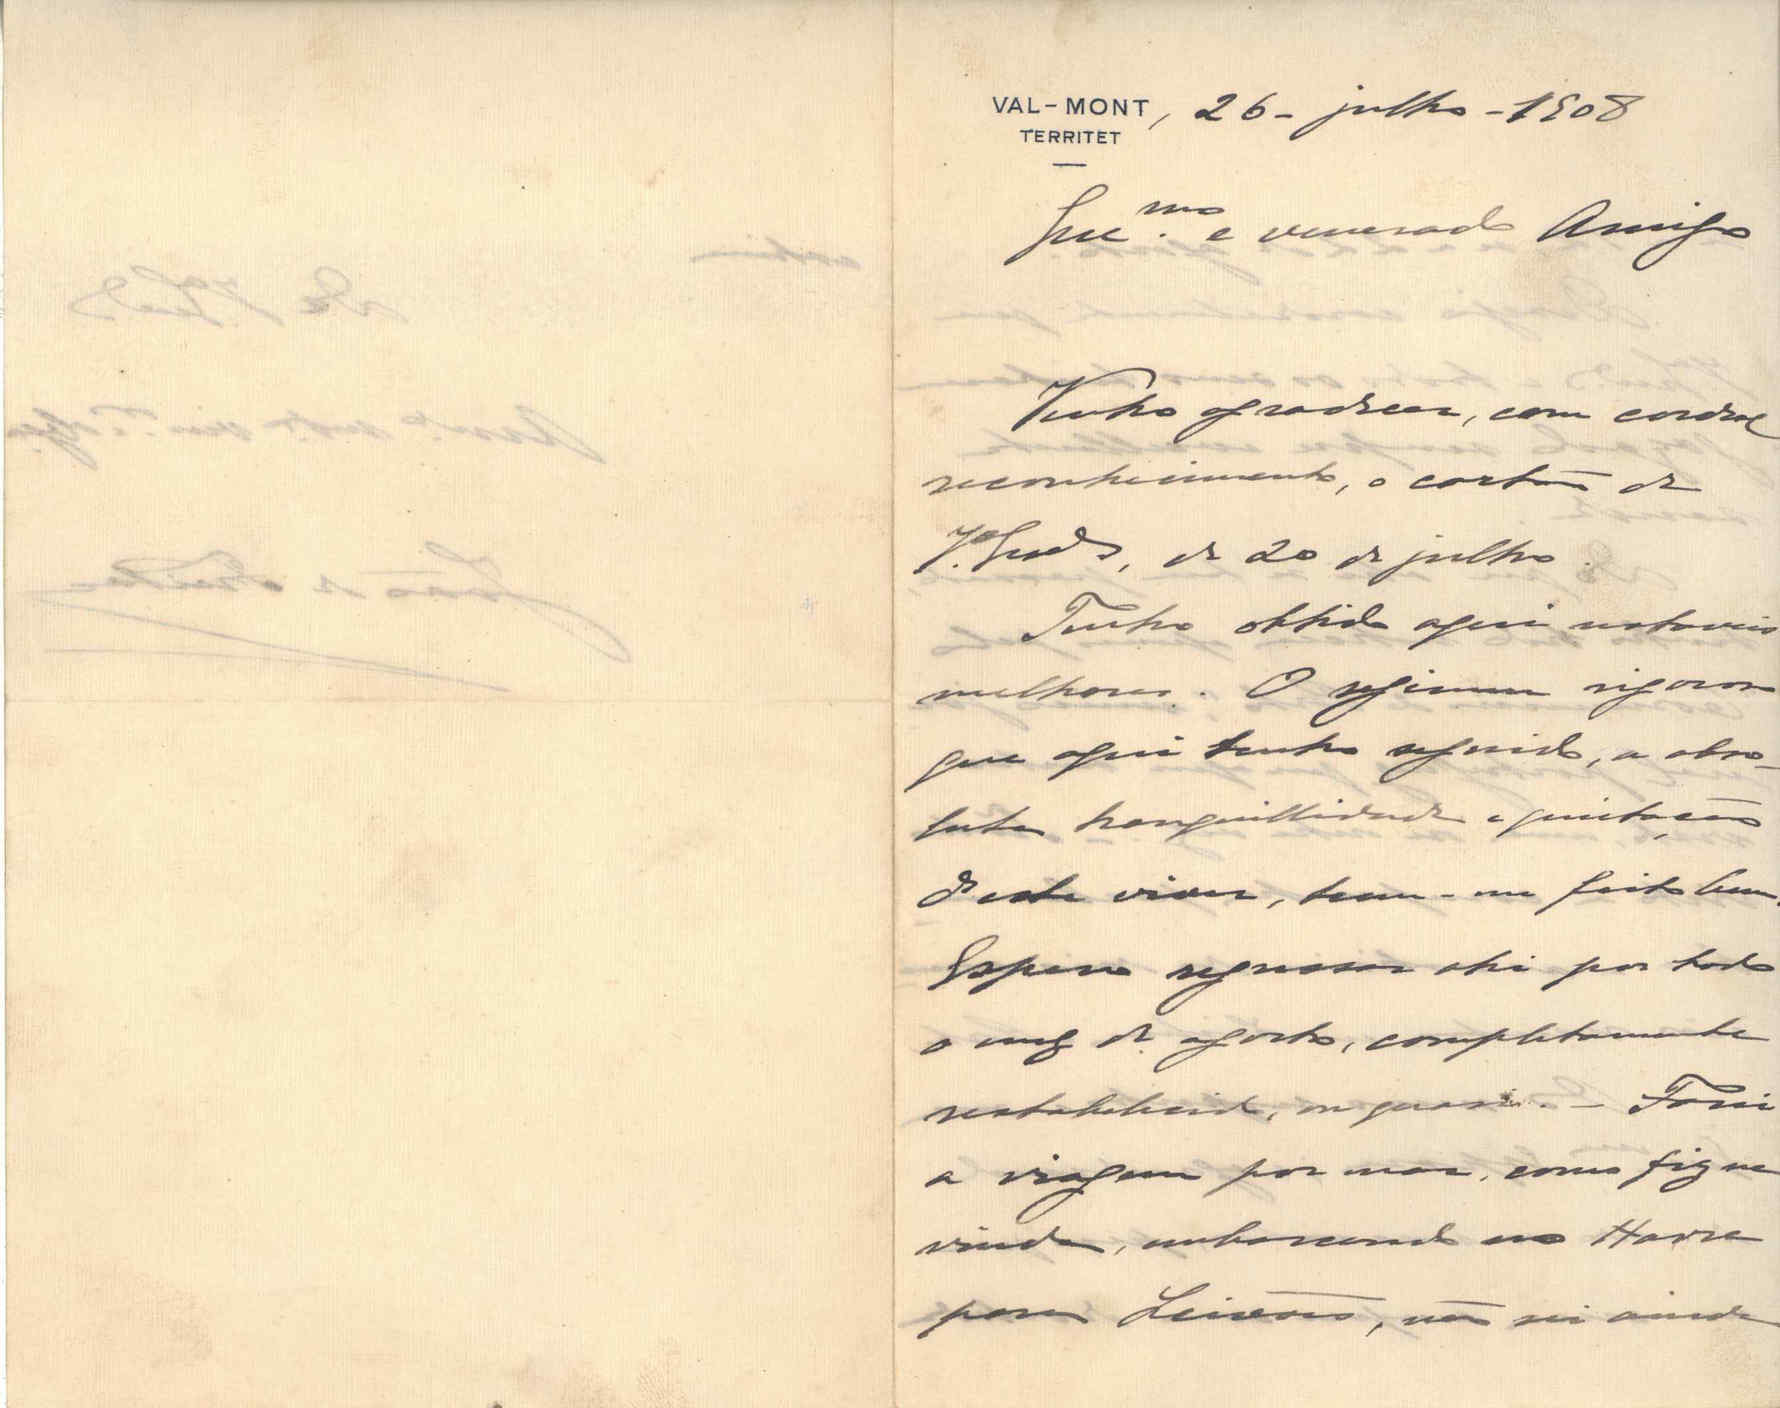 VAL-MONT, 26 - julho - 1908
TERRITET
Exc.mo e venerado Amigo
Venho agradecer, com cordeal
reconhecimento, o cartão de
V. Exca, de 20 de julho.
Tenho obtido aqui notaveis
melhoras. O regimen rigoroso
que aqui tenho seguido, a abso-
luta tranquillidade e quietação
d'este viver, teem-me feito bem.
Espero regressar ahi por todo
o mez de agosto, completamente
restabelecido, ou quasi. - Farei
a viagem por mar, como fiz na
vinda, embarcando no Havre
para Leixões, não sei ainda